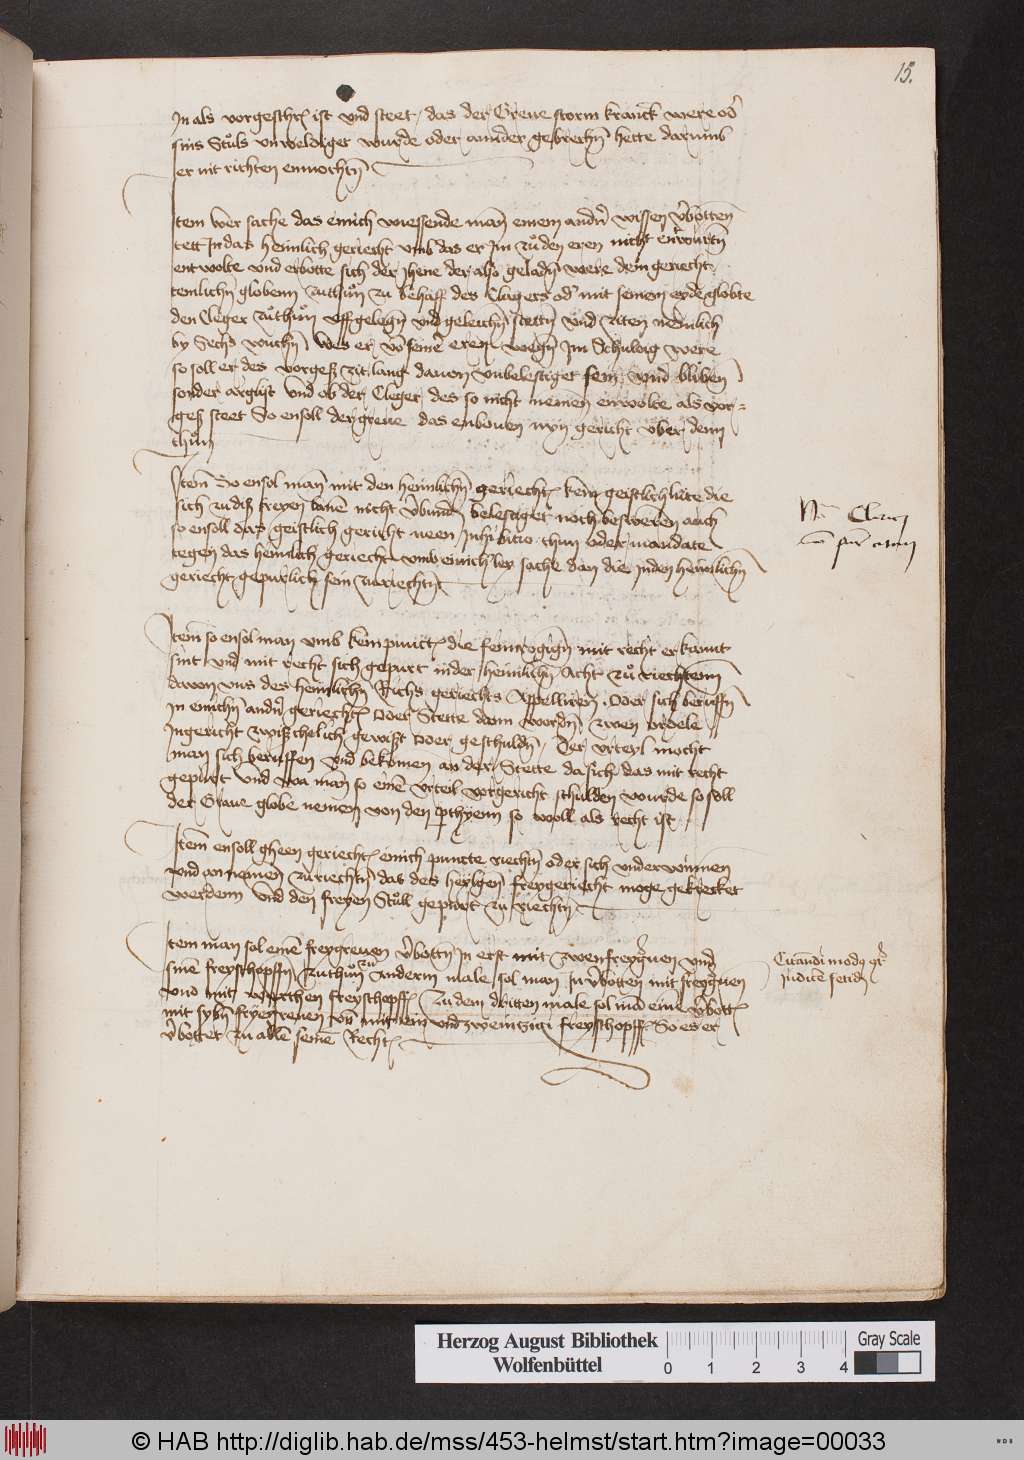 15.
In als vorgeschr ist vnd steet / das der Greue storm kranck were od
sins Stůls vnweldiger wurde oder annder gebrechn hette darumb
er nit richten enmochtn
Item wer sache das einich wiessende man einem andn wissen vbotten
tett In das heimlich geriecht vmb das er im zů den eren nicht
entwolte vnd erbotte sich der Ihene der also geladn were dem geriecht
temlichn globenn zuthůn zu behůff des Clagers od mit seinem eyde globte
den Cleger zuthůn vff gelegn vnd geleichn stettn vnd ziten nemlich
by Sechs wuchn / wes er vo seine eren wegn Im Schuldig were
so soll er des vorgess zit lang dauon vnbelestiget sein vnd bliben
sonder argelist Vnd ob der Cleger des so nicht nemen enwolte als vor=
gess steet So ensoll der greue das enbouen nyn gericht vber denn
thůn
Item So ensol man mit den heimlichn geriecht kein geistlich lute die
sich zu diß freyen bane nicht vbundn belestiget noch besweren auch
so ensoll das geistlich gericht neen Inhibitio thun oder mandate
tegen das heimlich geriecht vmb einicherley sache dan die Inden heimlichn
geriecht gepurlich sein zuriechtn
Na Clerici
Item so ensol man vmb kein punct die feimrogign mit recht erkannt
sint vnd mit recht sich gepurt inder heimlichn Acht zů riechtenn
dauon vns des heimlichn Richs geriechts Appelliren. Oder sich beruffn
In einichn andn geriecht Oder Stette dann wordn zwen vrdele
Ingericht zwißchelich gewißt oder geschuldn / Der vrteyl mocht
man sich beruffen vnd bekomen an der Stette da sich das mit recht
gepurt vnd wa man so eine vrteil vorgericht schulden wurde so soll
der Graue globe nemen von den pthyenn so woll als recht ist
Item ensoll gheen geriecht einich puncte riechtn oder sich vnderwinnen
vnd an nemen zuriechtn das des heylgen freygeriecht moge gekrecket
werdenn vnd den freyen Stůll gepůrt zu riechtn
Item man sol eine freygreuen vbottn In erst mit zwen freygreuen vnd
sine freyschopffn zuthun zu Anderm male sol man In vbotten mit freygreuen
vnd mit freyschopff Zu dem dritten male sol ma eine vbott
mit sybn freyegreuen vn mit ein vnd zweintzigi freyschopff So es er
vbottet zu alle seine Recht
Citandi modus
iudice
Herzog August Bibliothek
Wolfenbüttel
0 1 2 3 4
Gray Scale
© HAB http://diglib.hab.de/mss/453-helmst/start.htm?image=00033